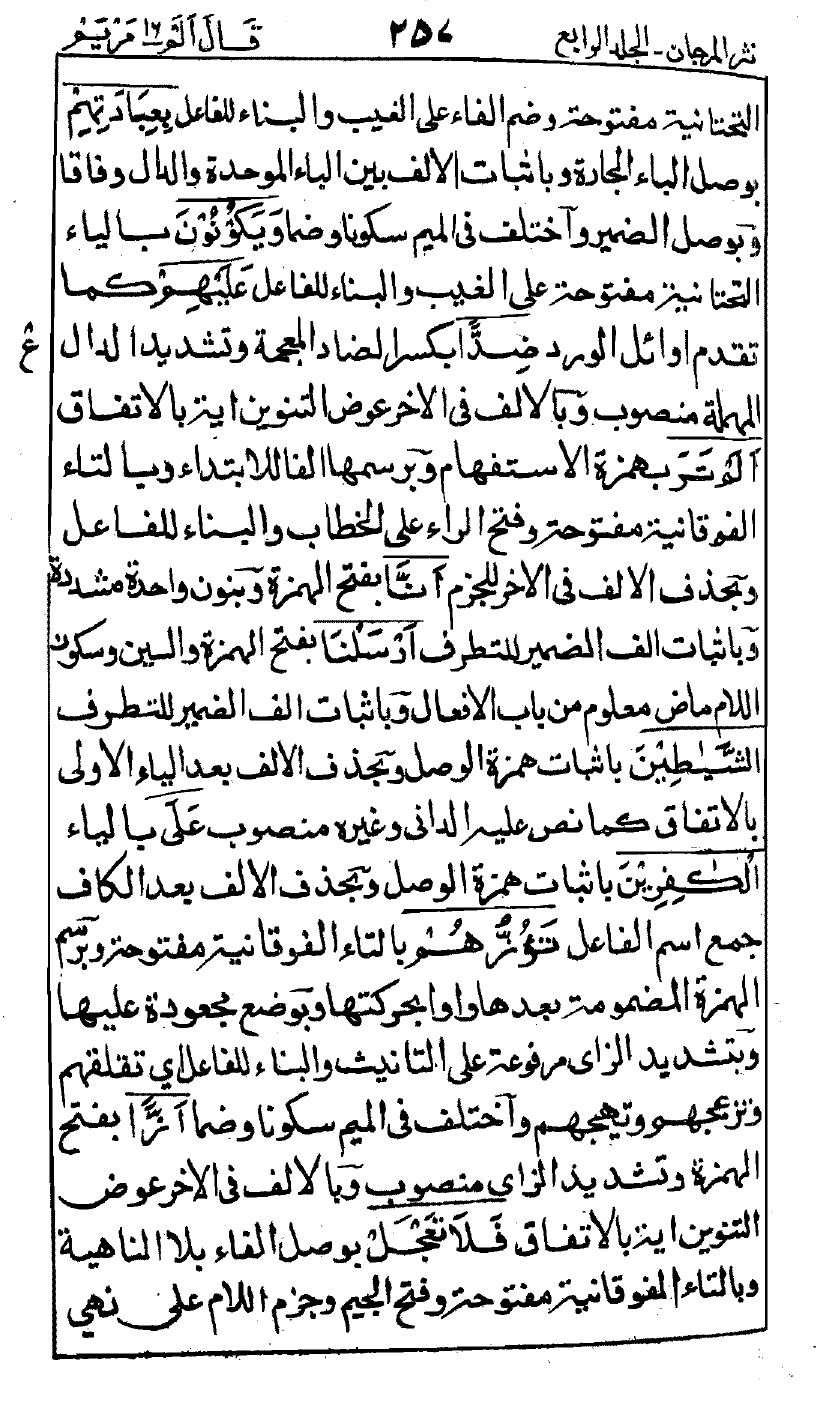 نثر المرجان - الجلد الرابع ٢٥٧ قَالَ اَلَمْ ١٦ مَرْيَمْ
التحتانية مفتوحة وضم الفاء على الغيب والبناء للفاعل بِعِبَادَتِهِمْ
بوصل الباء الجارة وباثبات الالف بين الباء الموحدة والدال وفاقا
وبوصل الضمير وآختلف فى الميم سكونا وضما وَيَكُوْنُوْنَ بالياء
التحتانية مفتوحة على الغيب والبناء للفاعل عَلَيْهِمْ كما
تقدم اوائل الورد ضِدًّا بكسر الضاد المعجمة وتشديد الدال
ع
المهملة منصوب وبالالف فى الاخر عوض التنوين اية بالاتفاق
اَلَمْ تَرَ بهمزة الاستفهام وبرسمها الفا للابتداء وبالتاء
الفوقانية مفتوحة وفتح الراء على الخطاب والبناء للفاعل
وبحذف الالف فى الاخر للجزم اَنَّا بفتح الهمزة وبنون واحدة مشددة
وباثبات الف الضمير للتطرف اَرْسَلْنَا بفتح الهمزة والسين وسكون
اللام ماض معلوم من باب الافعال وباثبات الف الضمير للتطرف
الشَّيٰطِيْنَ باثبات همزة الوصل وبحذف الالف بعد الياء الاولى
بالاتفاق كما نص عليه الدانى وغيره منصوب عَلَى بالياء
الْكٰفِرِيْنَ باثبات همزة الوصل وبحذف الالف بعد الكاف
جمع اسم الفاعل تَؤُزُّهُمْ بالتاء الفوقانية مفتوحة وبرسم
الهمزة المضمومة بعدها واوا بحركتها وبوضع مجعودة عليها
وبتشديد الزاى مرفوعة على التانيث والبناء للفاعل اي تقلقهم
وتزعجهم وتهيجهم وآختلف فى الميم سكونا وضما اَزًّا بفتح
الهمزة وتشديد الزاي منصوب وبالالف فى الاخر عوض
التنوين اية بالاتفاق فَلَا تَعْجَلْ بوصل الفاء بلا الناهية
وبالتاء الفوقانية مفتوحة وفتح الجيم وجزم اللام على نهي